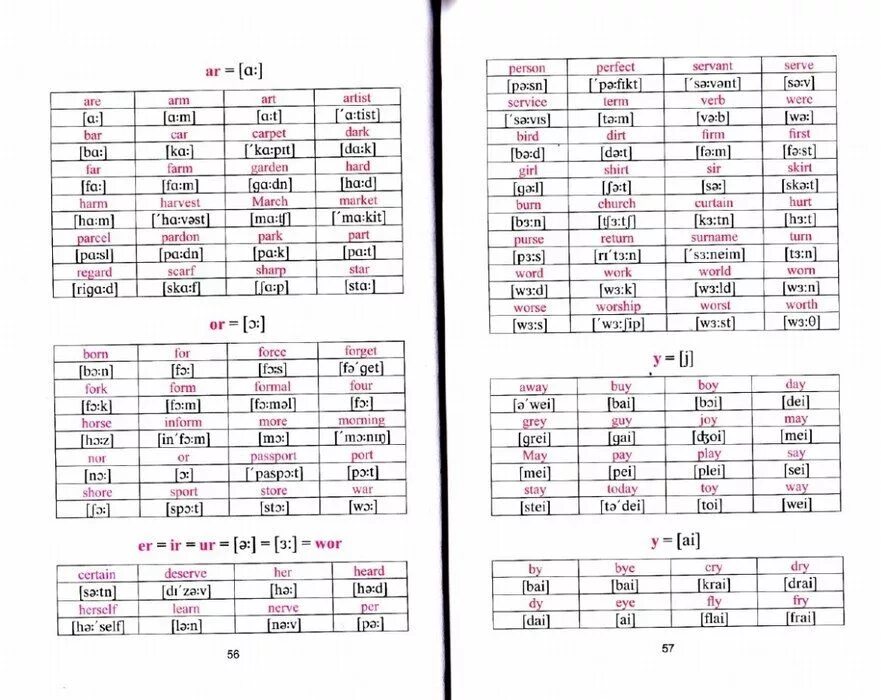 ar = [ɑ:]
are arm art artist
[ɑ:] [ɑ:m] [ɑ:t] [ˊɑ:tist]
bar car carpet dark
[bɑ:] [kɑ:] [ˊkɑ:pɪt] [dɑ:k]
far farm garden hard
[fɑ:] [fɑ:m] [gɑ:dn] [hɑ:d]
harm harvest March market
[hɑ:m] [ˊhɑ:vəst] [mɑ:ʧ] [ˊmɑ:kit]
parcel pardon park part
[pɑ:sl] [pɑ:dn] [pɑ:k] [pɑ:t]
regard scarf sharp star
[rigɑ:d] [skɑ:f] [ʃɑ:p] [stɑ:]
or = [ɔ:]
born for force forget
[bɔ:n] [fɔ:] [fɔ:s] [fəˊget]
fork form formal four
[fɔ:k] [fɔ:m] [fɔ:məl] [fɔ:]
horse inform more morning
[hɔ:z] [inˊfɔ:m] [mɔ:] [ˊmɔ:nɪŋ]
nor or passport port
[nɔ:] [ɔ:] [ˊpaspɔ:t] [pɔ:t]
shore sport store war
[ʃɔ:] [spɔ:t] [stɔ:] [wɔ:]
er = ir = ur = [ə:] = [ɜ:] = wor
certain deserve her heard
[sə:tn] [dɪˊzə:v] [hə:] [hə:d]
herself learn nerve per
[hə:ˊself] [lə:n] [nə:v] [pə:]
56
person perfect servant serve
[pə:sn] [ˊpə:fɪkt] [ˊsə:vənt] [sə:v]
service term verb were
[ˊsə:vɪs] [tə:m] [və:b] [wə:]
bird dirt firm first
[bə:d] [də:t] [fə:m] [fə:st]
girl shirt sir skirt
[gə:l] [ʃə:t] [sə:] [skə:t]
burn church curtain hurt
[bɜ:n] [tʃɜ:tʃ] [kɜ:tn] [hɜ:t]
purse return surname turn
[pɜ:s] [rɪˊtɜ:n] [ˊsɜ:neim] [tɜ:n]
word work world worn
[wɜ:d] [wɜ:k] [wɜ:ld] [wɜ:n]
worse worship worst worth
[wɜ:s] [ˊwɜ:ʃip] [wɜ:st] [wɜ:θ]
y = [j]
away buy boy day
[əˊwei] [bai] [bɔi] [dei]
grey guy joy may
[grei] [gai] [ʤoi] [mei]
May pay play say
[mei] [pei] [plei] [sei]
stay today toy way
[stei] [təˊdei] [toi] [wei]
y = [ai]
by bye cry dry
[bai] [bai] [krai] [drai]
dy eye fly fry
[dai] [ai] [flai] [frai]
57